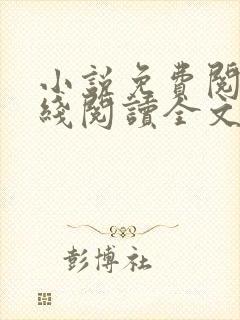 小説免費閱
綫閱讀全文
彭博社